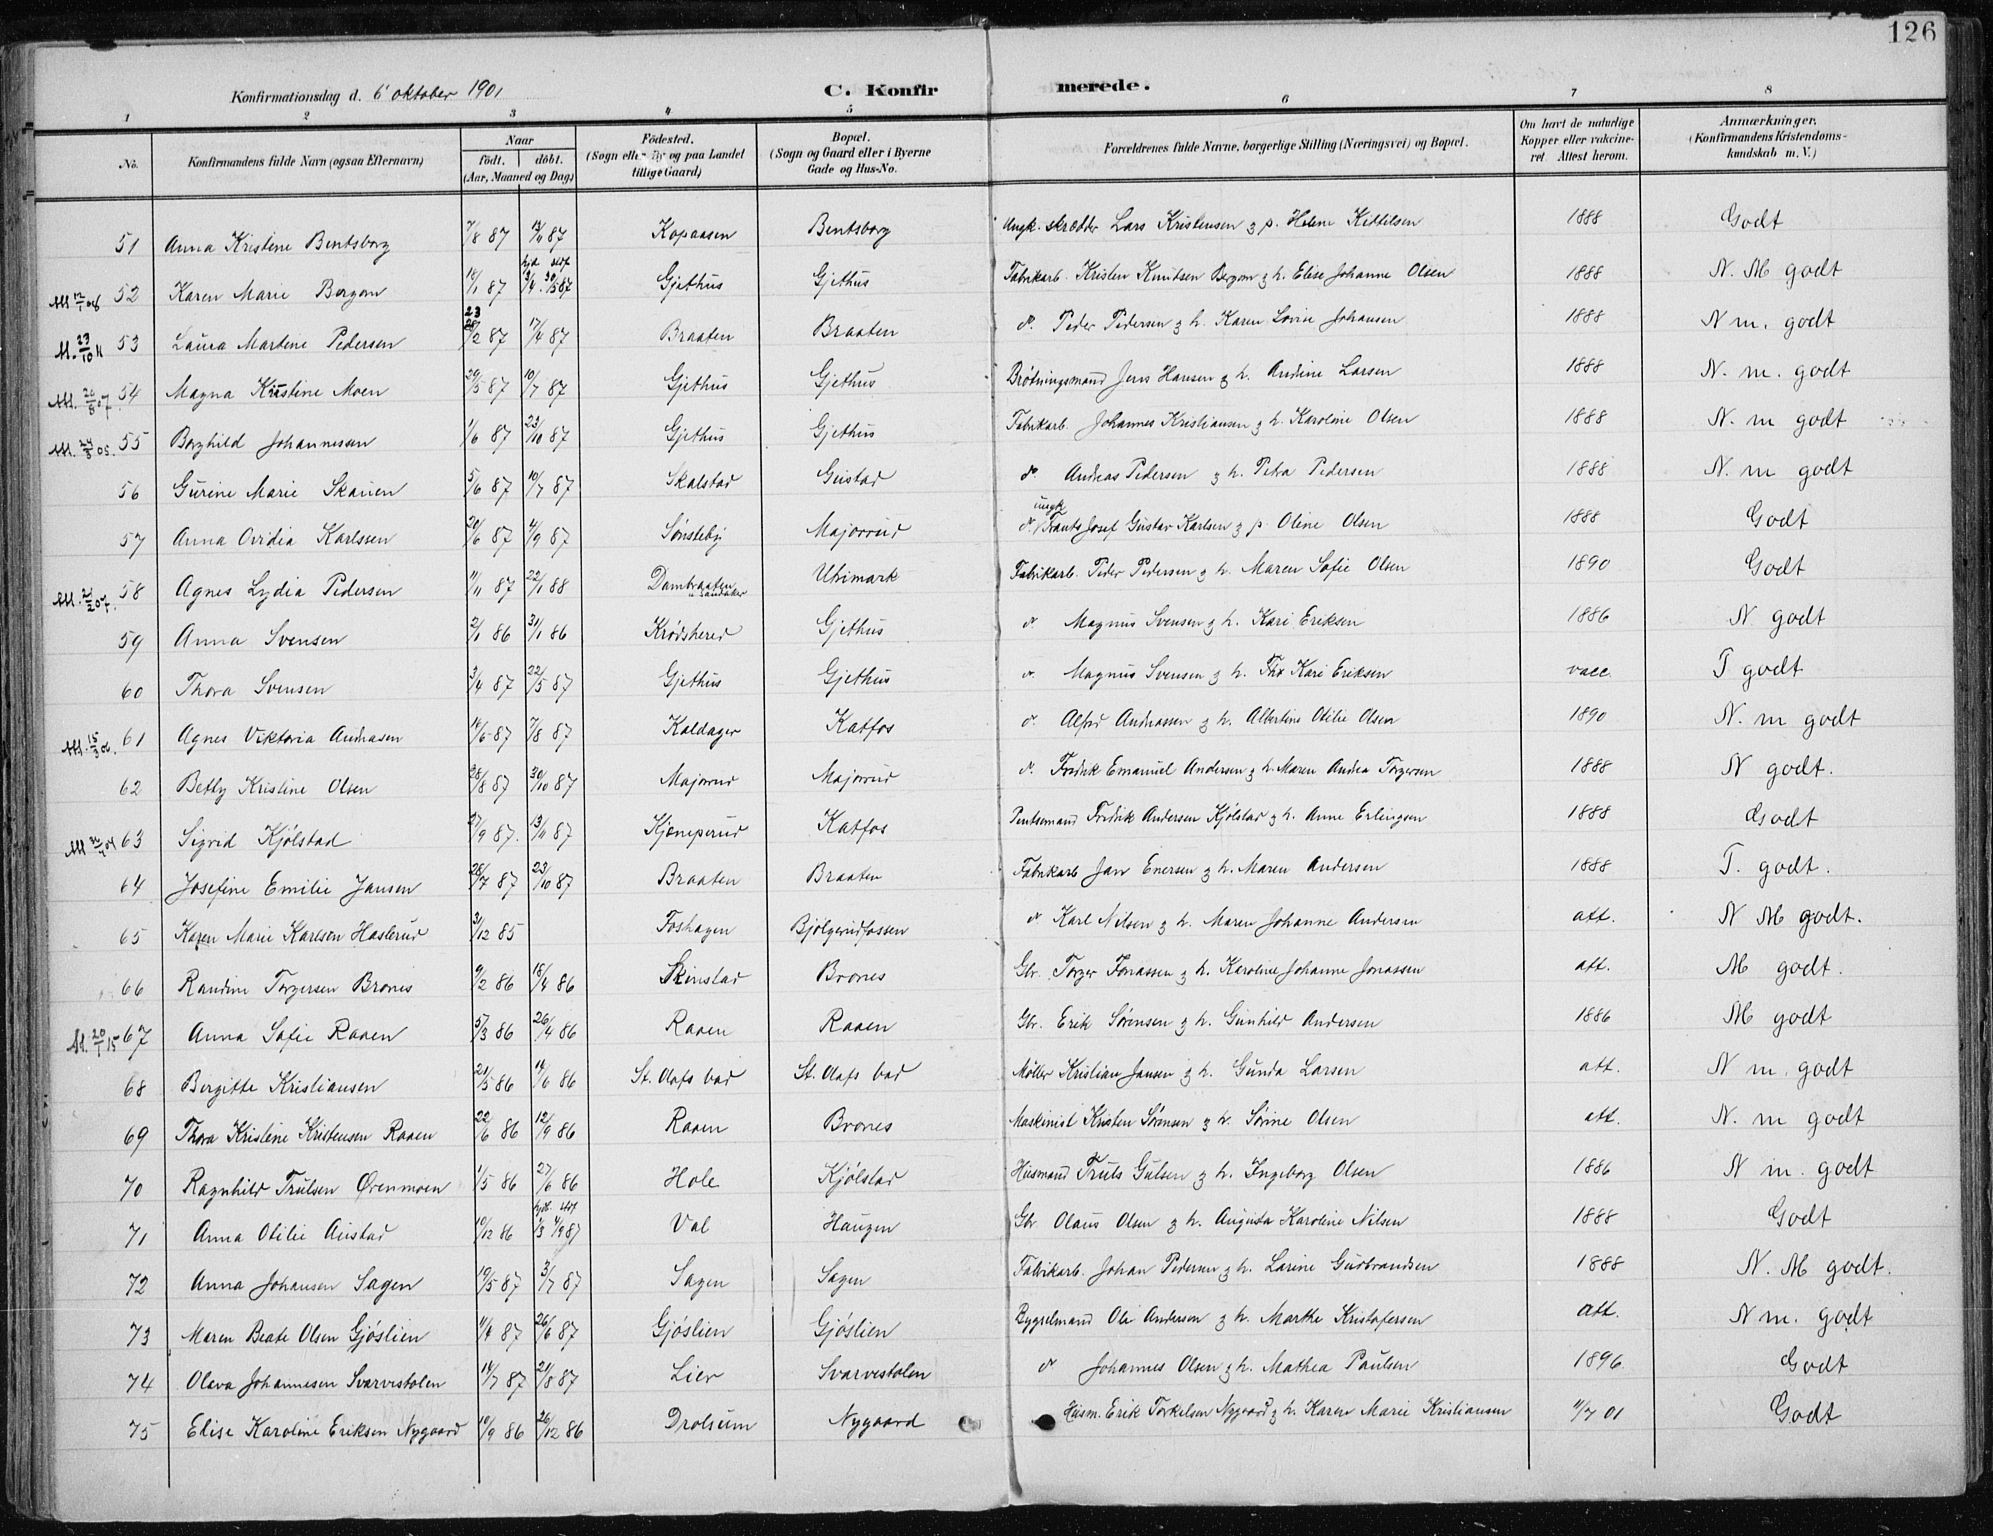 126
Konfirmationsdag d. 6' oktober 1901 C. Konfirmerede.
1 2 3 4 5 6 7 8
No. Konfirmandens fulde Navn (ogsaa Efternavn) Naar födt. döbt. (Aar, Maaned og Dag) Födested. (Sogn eller By og paa Landet tillige Gaard) Bopæl. (Sogn og Gaard eller i Byerne Gade og Hus-No. Forældrenes fulde Navne, borgerlige Stilling (Næringsvei) og Bopæl. Om havt de naturlige Kopper eller vakcineret Attest herom. Anmærkninger. (Konfirmandens Kristendomskundskab m. V.)
51 Anna Kristine Bentsborg 7/8 87 87 Kopaasen Bentsborg Ungk. skrædder Lars Kristensen & p. Helene Kittelsen 1888 Godt
52 Karen Marie Bergan 14/1 87 hjd. 3/4 30/5 87 Gjethus Gjethus Fabrikarb. Kristen Knutsen Bergan & h. Elise Johanne Olsen 1888 N. M godt
M. 23/10 11 53 Laura Martine Pedersen 23 /2 87 17/4 87 Braaten Braaten do. Peder Pedersen & h. Karen Lovise Johansen 1888 N m. godt
M. 20/8 07. 54 Magna Kristine Moen 29/5 87 10/7 87 Gjethus Gjethus Brötningsmand Jens Hansen & h. Andine Larsen 1888 N. m. godt
M. 24/3 05. 55 Borghild Johannessen 1/6 87 23/10 87 Gjethus Gjethus Fabrikarb. Johannes Kristiansen & h. Karoline Olsen 1888 N. m godt
56 Gurine Marie Skauen 5/6 87 10/7 87 Skalstad Gustad do. Andreas Pedersen & h. Petra Pedersen 1888 N. m godt
57 Anna Ovidia Karlssen 20/6 87 4/9 87 Sönsteby Majorrud do. ungk. Frants Josef Gustav Karlsen & p. Oline Olsen 1888 Godt
58 Agnes Lydia Pedersen 11/11 87 22/1 88 Dambraaten Utsimark Fabrikarb. Peder Pedersen & h. Maren Sofie Olsen 1890 Godt
59 Anna Svensen 2/1 86 31/1 86 Krödsherred Gjethus do. Magnus Svensen & h. Kari Eriksen 1886 N godt
60 Thora Svensen 3/4 87 22/5 87 Gjethus Gjethus do. Magnus Svensen & h. Kari Eriksen vacc. T godt
M. 15/3 06. 61 Agnes Viktoria Andrasen 14/6 87 7/8 87 Kaldager Katfos do. Alfred Andreassen & h. Albertine Otilie Olsen 1890 N. m godt
62 Betty Kristine Olsen 28/8 87 30/10 87 Majorrud Majorrud do. Fredrik Emanuel Andersen & h. Maren Andrea Torgersen 1888 N godt.
63 Sigrid Kjölstad 27/9 87. 13/11 87 Kjöneperud Katfos Fredrik Andersen Kjölstad & h. Anne Erlingsen 1888 Godt
64 Josefine Emilie Jansen 28/7 87 23/10 87 Braaten Braaten Fabrikarb Jan Enersen & h. Maren Andersen 1888 T. godt.
65 Karen Marie Karlsen Haslerud 3/12 85 Foshagen Bjölgerudfossen do. Karl Nilsen & h. Maren Johanne Andersen att. N M godt.
66 Randine Torgersen Brones 9/2 86 18/4 86 Skinstad Brones Gbr. Torger Jonassen & h. Karoline Johanne Jonassen att. M godt.
M. 20/1 15 67 Anna Sofie Raaen 5/3 86 26/4 86 Raaen Raaen Gbr. Erik Sörensen & h. Gunhild Andersen 1886 M godt
68 Birgitte Kristiansen 21/5 86 14/6 86 St. Olafs bad St. Olafs bad Möller Kristian Jansen & h. Gunda Larsen att. N m. godt
69 Thora Kristine Kristensen Raaen 22/6 86 12/9 86 Raaen Brones Maskinist Kristen Sörensen & h. Sörine Olsen att. N. m godt
70 Ragnhild Trulsen Örenmoen 1/5 86 27/6 86 Hole Kjölstad Husmand Truls Gulsen & h. Ingeborg Olsen 1886 N m. godt
71 Anna Otilie Austad 10/12 86 1/3 4/9 87 Val Haugen Gbr Olaus Olsen & h. Augusta Karoline Nilsen 1888 Godt
72 Anna Johansen Sagen 19/5 87 3/7 87 Sagen Sagen Fabrikarb. Johan Pedersen & h. Larine Gudbrandsen 1888 N. M godt.
73 Maren Beate Olsen Gjöslien 11/4 87 26/6 87 Gjöslien Gjöslien Bygselmand Ole Andersen & h. Marthe Kristofersen att. N m. godt
74 Oleva Johannesen Svarvestolen 14/7 87 21/8 87 Lier Svarvestolen do. Johannes Olsen & h. Mathea Paulsen 1896. Godt
75 Elise Karoline Eriksen Nygaard 10/9 86 26/12 86 Drolsum Nygaard Husm. Erik Torkelsen Nygaard & h. Karen Marie Kristiansen 4/7 01 Godt